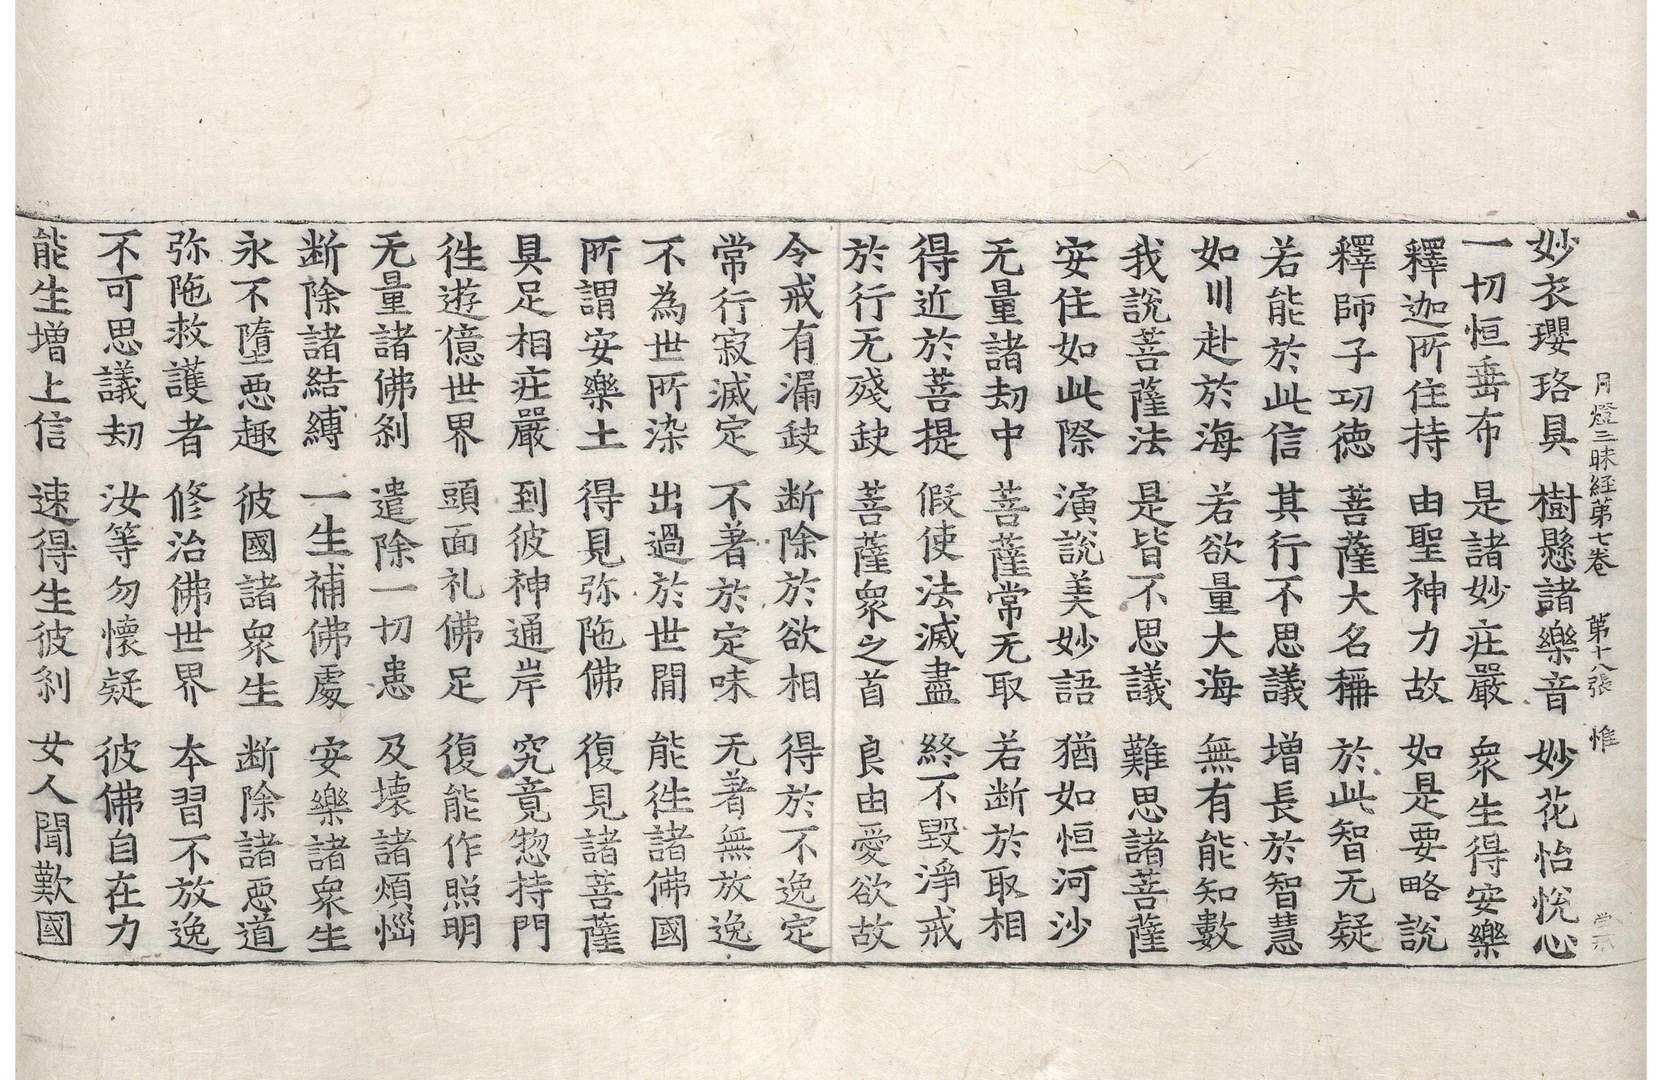 月燈三昧経苐七巻 第十八張 惟
妙衣瓔珞具 樹懸諸樂音 妙花怡悅心
一切恒垂布 是諸妙庄嚴 衆生得安樂
釋迦所住持 由聖神力故 如是要略說
釋師子功德 菩薩大名稱 於此智无疑
若能於此信 其行不思議 增長於智慧
如川赴於海 若欲量大海 無有能知數
我說菩薩法 是皆不思議 難思諸菩薩
安住如此際 演說美妙語 猶如恒河沙
无量諸劫中 菩薩常无取 若断於取相
得近於菩提 假使法滅盡 終不毀淨戒
於行无殘缺 菩薩衆之首 良由愛欲故
令戒有漏缺 断除於欲相 得於不逸定
常行寂滅定 不著於定味 无著無放逸
不為世所染 出過於世間 能徃諸佛國
所謂安樂土 得見弥陁佛 復見諸菩薩
具足相庄嚴 到彼神通岸 究竟惣持門
徃遊億世界 頭面礼佛足 復能作照明
无量諸佛刹 遣除一切恚 及壞諸煩惱
断除諸結縛 一生補佛處 安樂諸衆生
永不墮惡趣 彼國諸衆生 断除諸惡道
弥陁救護者 修治佛世界 本習不放逸
不可思議劫 汝等勿懷疑 彼佛自在力
能生增上信 速得生彼刹 女人聞歎國